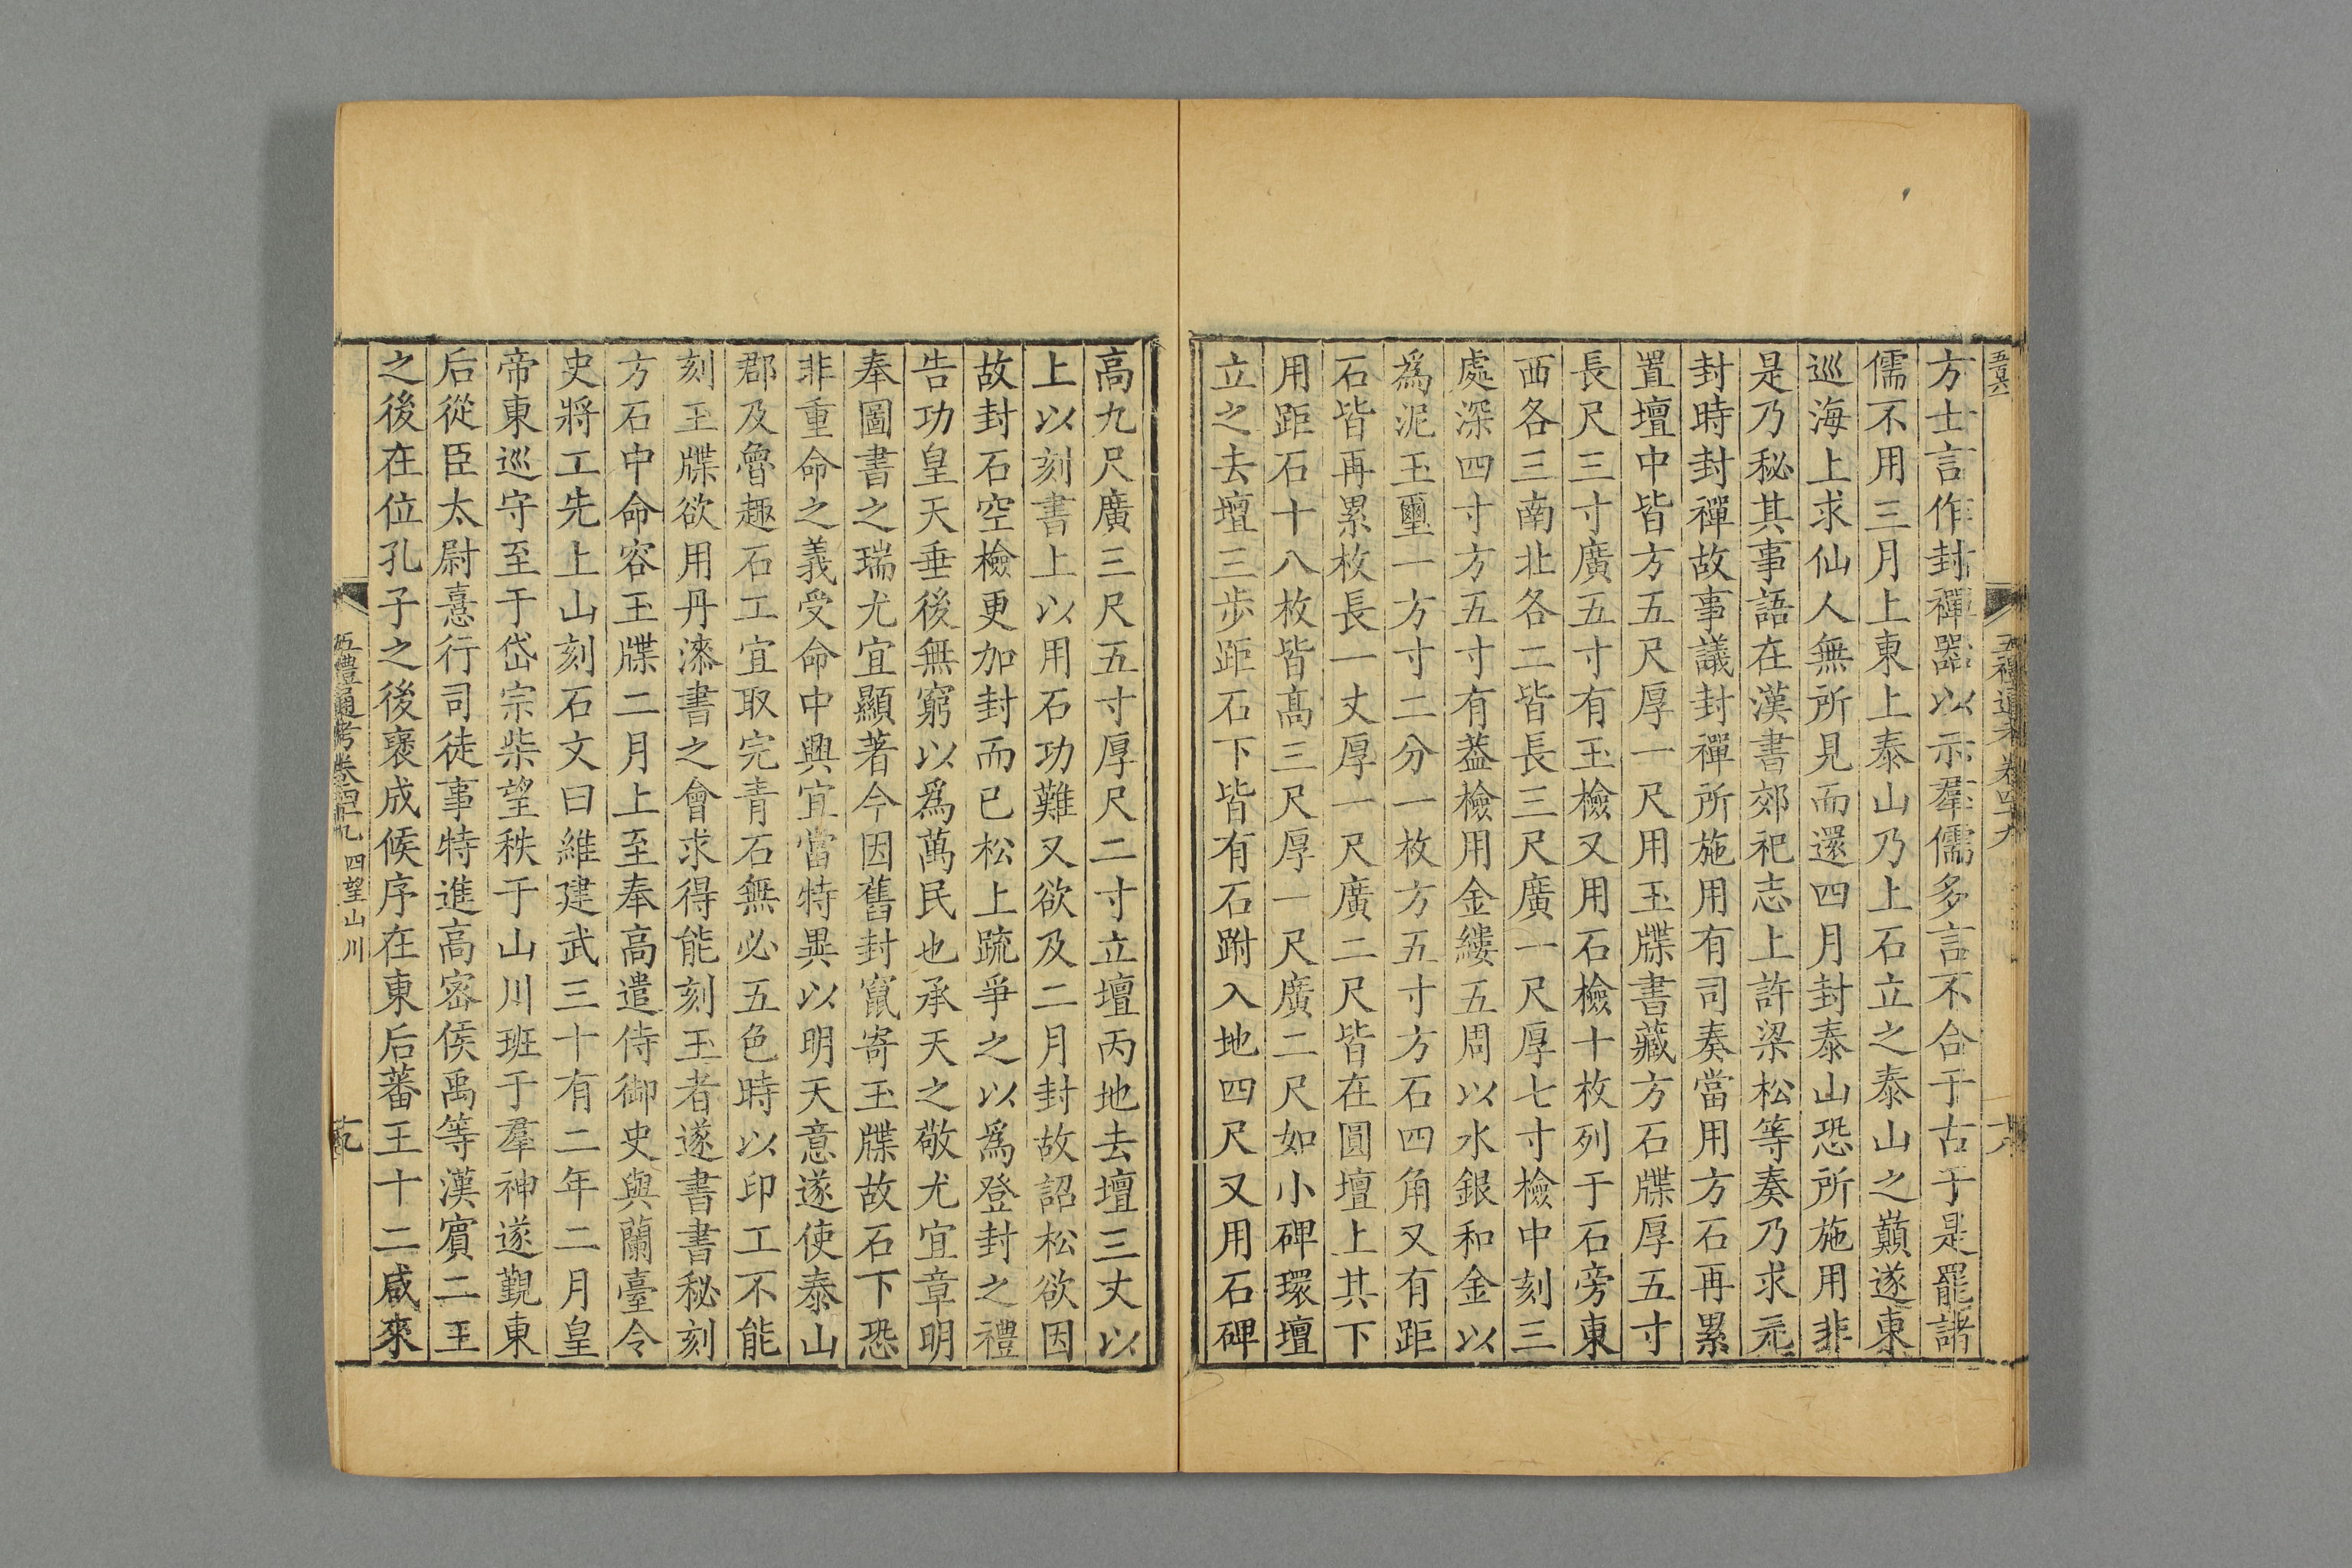 方士言作封禪器以示羣儒多言不合于古于是罷諸
儒不用三月上東上泰山乃上石立之泰山之巔遂東
巡海上求仙人無所見而還四月封泰山恐所施用非
是乃秘其事語在漢書郊祀志上許梁松等奏乃求元
封時封禪故事議封禪所施用有司奏當用方石再累
置壇中皆方五尺厚一尺用玉牒書藏方石牒厚五寸
長尺三寸廣五寸有玉檢又用石檢十枚列于石旁東
西各三南北各二皆長三尺廣一尺厚七寸檢中刻三
處深四寸方五寸有葢檢用金縷五周以水銀和金以
爲泥玉璽一方寸二分一枚方五寸方石四角又有距
石皆再累枚長一丈厚一尺廣二尺皆在圓壇上其下
用距石十八枚皆高三尺厚一尺廣二尺如小碑環壇
立之去壇三步距石下皆有石跗入地四尺又用石碑
高九尺廣三尺五寸厚尺二寸立壇丙地去壇三丈以
上以刻書上以用石功難又欲及二月封故詔松欲因
故封石空檢更加封而已松上疏爭之以爲登封之禮
告功皇天垂後無窮以爲萬民也承天之敬尤宜章明
奉圖書之瑞尤宜顯著今因舊封竄寄玉牒故石下恐
非重命之義受命中興宜當特異以明天意遂使泰山
郡及魯趣石工宜取完青石無必五色時以印工不能
刻玉牒欲用丹漆書之會求得能刻玉者遂書書秘刻
方石中命容玉牒二月上至奉高遣侍御史與蘭臺令
史將工先上山刻石文曰維建武三十有二年二月皇
帝東巡守至于岱宗柴望秩于山川班于羣神遂覲東
后從臣太尉憙行司徒事特進高密侯禹等漢賓二王
之後在位孔子之後褒成侯序在東后蕃王十二咸來
五禮通考卷四十九 四望山川
十九